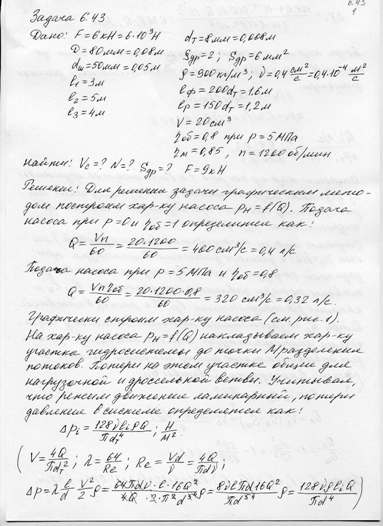 6.43
1
Задача 6.43
Дано: F=6кН=6·10³Н dт=8мм=0,008м
D=80мм=0,08м Sдр=2; Sдр=6мм²
dш=50мм=0,05м ρ=900кг/м³; ν=0,4 см²/с=0,4·10⁻⁴ м²/с
l₁=3м lф=200dт=1,6м
l₂=5м lр=150dт=1,2м
l₃=4м V=20см³
ηоб=0,8 при p=5МПа
ηм=0,85, n=1200об/мин
найти: Vс=? N=? Sдр=? F=9кН
Решение: Для решения задачи графическим мето-
дом построим хар-ку насоса pн=f(Q). Подача
насоса при p=0 и ηоб=1 определится как:
Q=Vn/60=20·1200/60=400см³/с=0,4 л/с
Подача насоса при p=5МПа и ηоб=0,8
Q=Vnηоб/60=20·1200·0,8/60=320см³/с=0,32 л/с.
Графически строим хар-ку насоса (см. рис.1).
На хар-ку насоса pн=f(Q) накладываем хар-ку
участка гидросистемы до точки М разделения
потоков. Потери на этом участке общие для
нагрузочной и дроссельной ветви. Учитывая,
что режим движения ламинарный, потери
давления в системе определятся как:
Δpᵢ=128νlᵢρQ/πdт⁴; Н/м².
(V=4Q/πdт²; λ=64/Re; Re=Vd/ν=4Q/πdν;
Δp=λ l/d V²/2 ρ=64πdν·l·16Q²/4Q·d·2·π²d⁴ ρ=8νlπd16Q²/πd⁵⁴ ρ=128νlᵢQ/πd⁴)